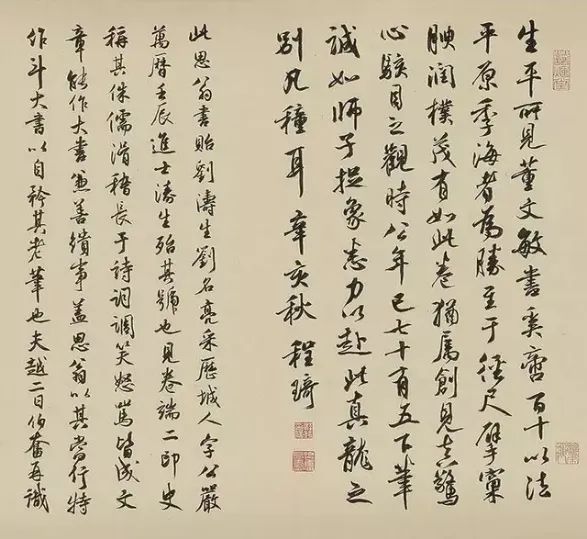 生平所見董文敏書奚啻百十以法
平原季海者為勝至于徑尺擘窠
腴潤樸茂有如此卷猶屬創見真驚
心駭目之觀時公年已七十有五下筆
誠如師子捉象志力以赴此真龍之
別凡種耳辛亥秋程琦
此思翁書貽劉濤生劉名亮采歷城人字公嚴
萬曆壬辰進士濤生殆其號也見卷端二印史
稱其侏儒滑稽長于詩詞調笑怒罵皆成文
章能作大書兼善繢事蓋思翁以其當行特
作斗大書以自矜其老筆也夫越二日伯奮再識